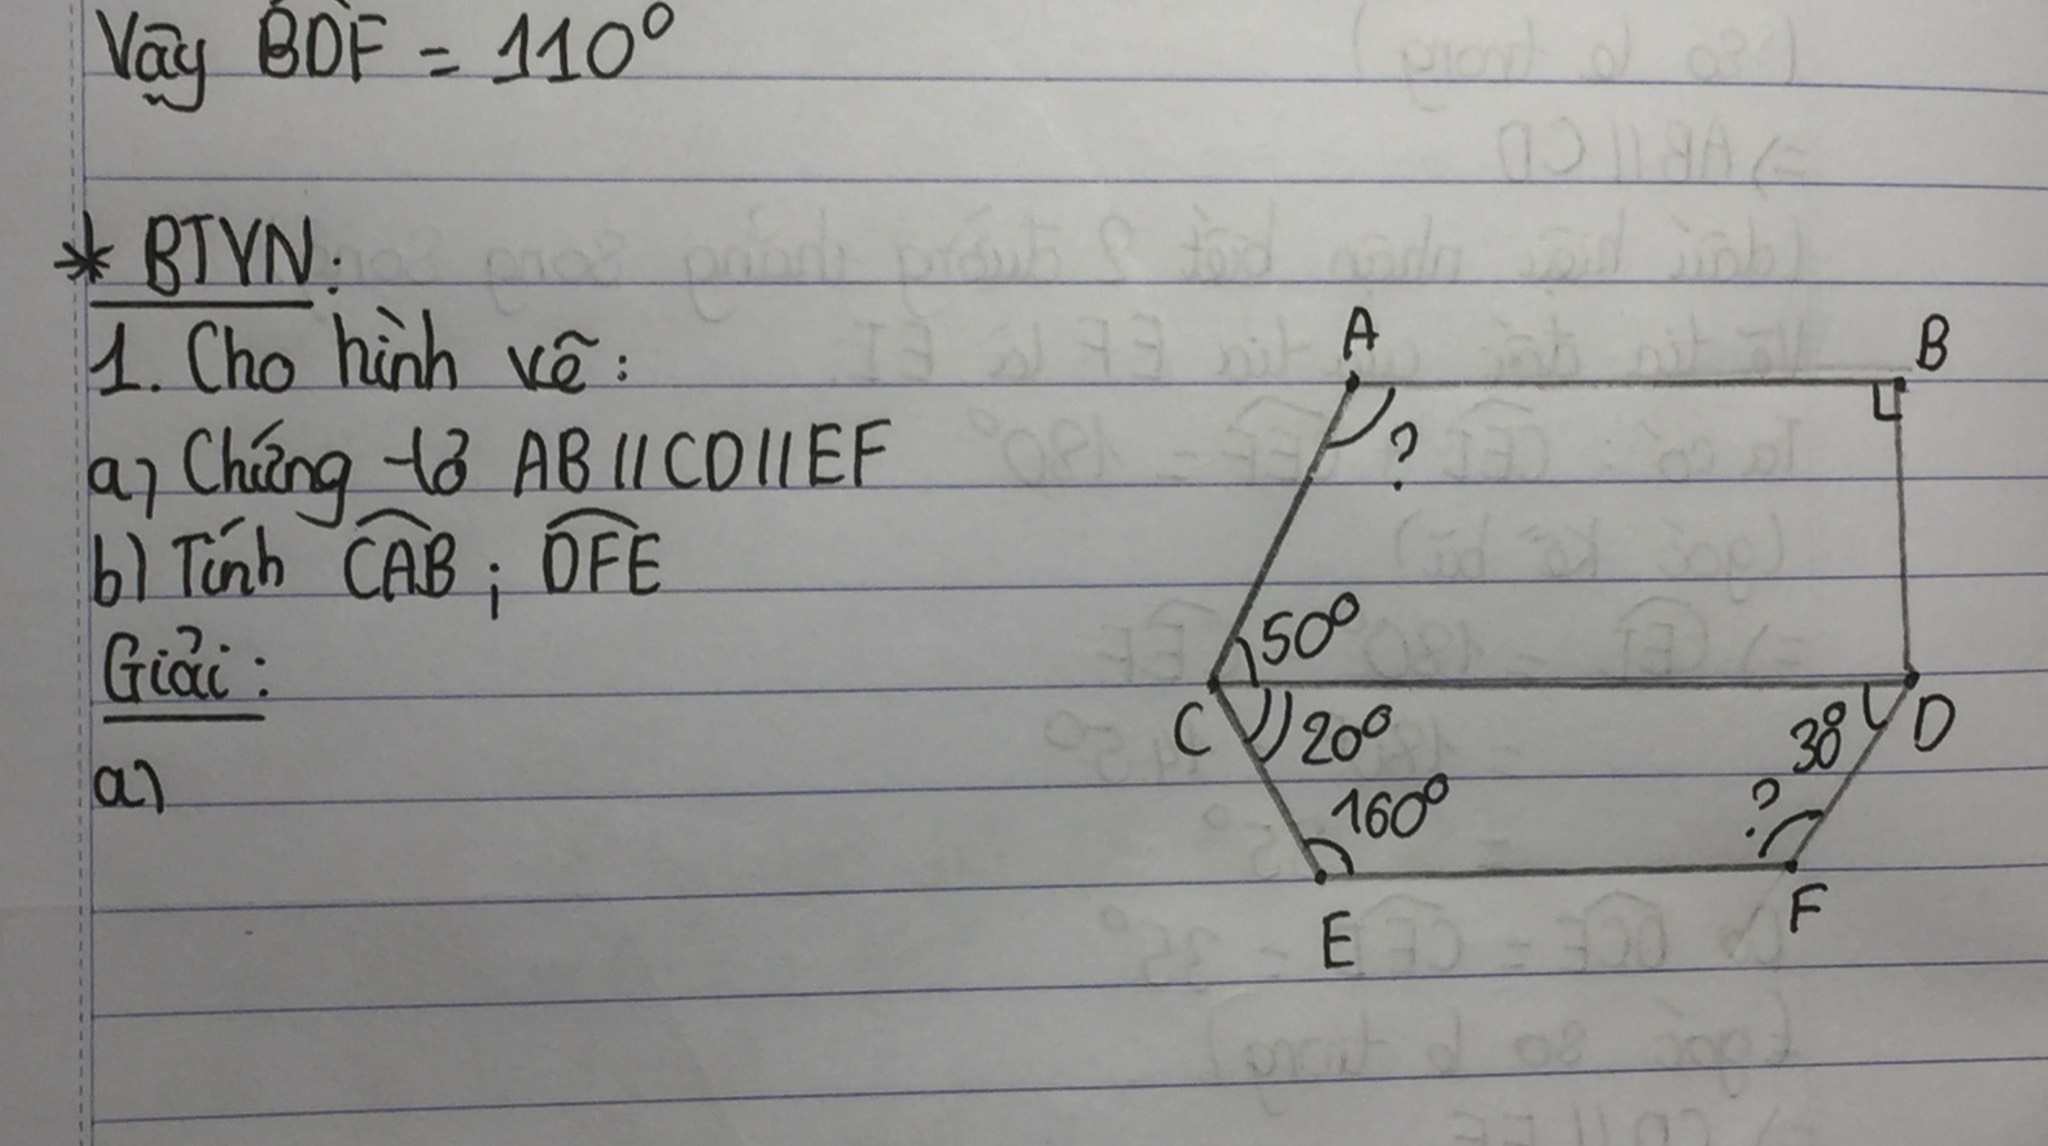 Vậy BDF = 110°
* BTVN:
1. Cho hình vẽ:
a) Chứng tỏ AB//CD//EF
b) Tính CAB ; DFE
Giải:
a)
A
B
?
50°
C
20°
30°
D
160°
?
E
F